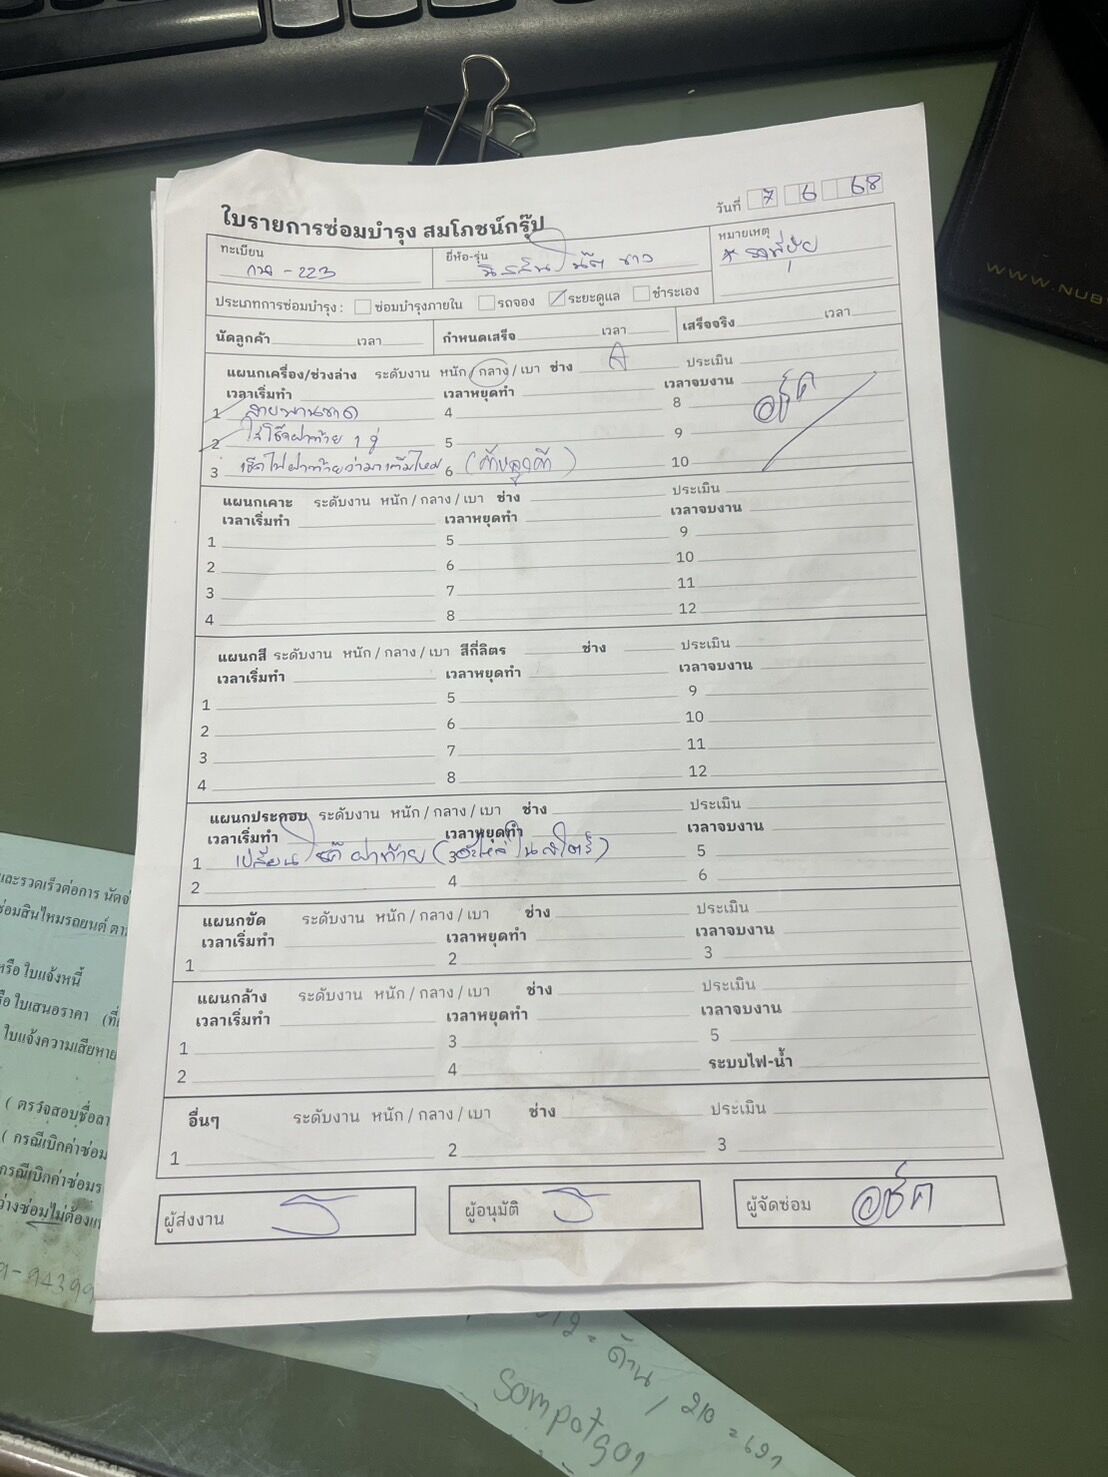 ใบรายการซ่อมบำรุง สมโภชน์กรุ๊ป
วันที่ 7 6 68
ทะเบียน
- 223
ยี่ห้อ-รุ่น
ขาว
หมายเหตุ
ประเภทการซ่อมบำรุง : ซ่อมบำรุงภายใน รถจอง ระยะดูแล ชำระเอง
นัดลูกค้า เวลา กำหนดเสร็จ เวลา เสร็จจริง เวลา
แผนกเครื่อง/ช่วงล่าง ระดับงาน หนัก / กลาง / เบา ช่าง A ประเมิน
เวลาเริ่มทำ เวลาหยุดทำ เวลาจบงาน
1 สายพานขาด 4 8 อาร์ต
2 ใส่โช๊คฝาท้าย 1 คู่ 5 9
3 เช็คไฟฝาท้ายว่ามาเต็มไหม 6 10
แผนกเคาะ ระดับงาน หนัก / กลาง / เบา ช่าง ประเมิน
เวลาเริ่มทำ เวลาหยุดทำ เวลาจบงาน
1 5 9
2 6 10
3 7 11
4 8 12
แผนกสี ระดับงาน หนัก / กลาง / เบา สีกี่ลิตร ช่าง ประเมิน
เวลาเริ่มทำ เวลาหยุดทำ เวลาจบงาน
1 5 9
2 6 10
3 7 11
4 8 12
แผนกประกอบ ระดับงาน หนัก / กลาง / เบา ช่าง ประเมิน
เวลาเริ่มทำ เวลาหยุดทำ เวลาจบงาน
1 เปลี่ยนโช๊คฝาท้าย 3 5
2 4 6
แผนกขัด ระดับงาน หนัก / กลาง / เบา ช่าง ประเมิน
เวลาเริ่มทำ เวลาหยุดทำ เวลาจบงาน
1 2 3
แผนกล้าง ระดับงาน หนัก / กลาง / เบา ช่าง ประเมิน
เวลาเริ่มทำ เวลาหยุดทำ เวลาจบงาน
1 3 5
2 4 ระบบไฟ-น้ำ
อื่นๆ ระดับงาน หนัก / กลาง / เบา ช่าง ประเมิน
1 2 3
ผู้ส่งงาน ผู้อนุมัติ ผู้จัดซ่อม อาร์ต
WWW.NUB
และรวดเร็วต่อการ นัด
ซ่อมสินไหมรถยนต์
หรือ ใบแจ้งหนี้
ใบเสนอราคา
ใบแจ้งความเสียหาย
( ตรวจสอบชื่อ
( กรณีเบิกค่าซ่อม
กรณีเบิกค่าซ่อม
ซ่อมไม่ต้อง
- 94399
= ด้าน / 210 =